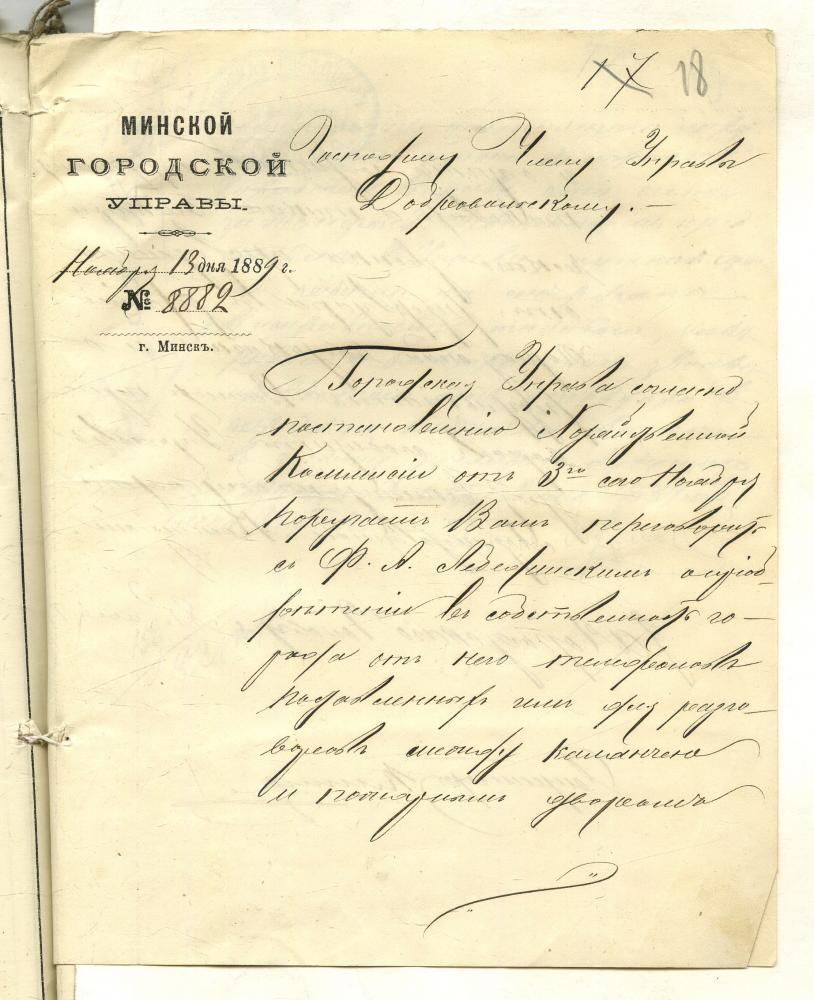 17 18
МИНСКОЙ
ГОРОДСКОЙ
УПРАВЫ.
Ноября 13 дня 1889 г.
№ 8882
г. Минскъ.
Господину Члену Управы
Добровольскому. —
Городская Управа согласно
постановленію
Коммисіи отъ 3го сего Ноября
поручаетъ Вамъ переговорить
съ Ф. А. о пріоб-
рѣтеніи въ собственность го-
рода отъ него телефоновъ
поставленныхъ имъ для разго-
воровъ между каланчею
и пожарнымъ дворомъ